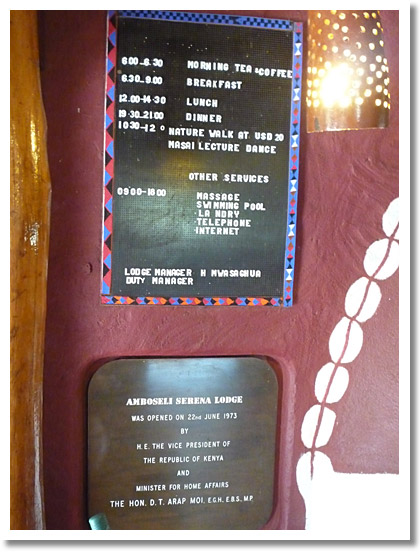 6.00-6.30 MORNING TEA & COFFEE
6.30-9.00 BREAKFAST
12.00-14.30 LUNCH
19.30-21.00 DINNER
10.30-12° NATURE WALK AT USD 20
MASAI LECTURE DANCE
OTHER SERVICES
09:00-18:00 MASSAGE
SWIMMING POOL
LA NDRY
TELEPHONE
INTERNET
LODGE MANAGER H MWASAGHUA
DUTY MANAGER
AMBOSELI SERENA LODGE
WAS OPENED ON 22ND JUNE 1973
BY
H.E. THE VICE PRESIDENT OF
THE REPUBLIC OF KENYA
AND
MINISTER FOR HOME AFFAIRS
THE HON. D.T. ARAP MOI, E.G.H, E.B.S, M.P